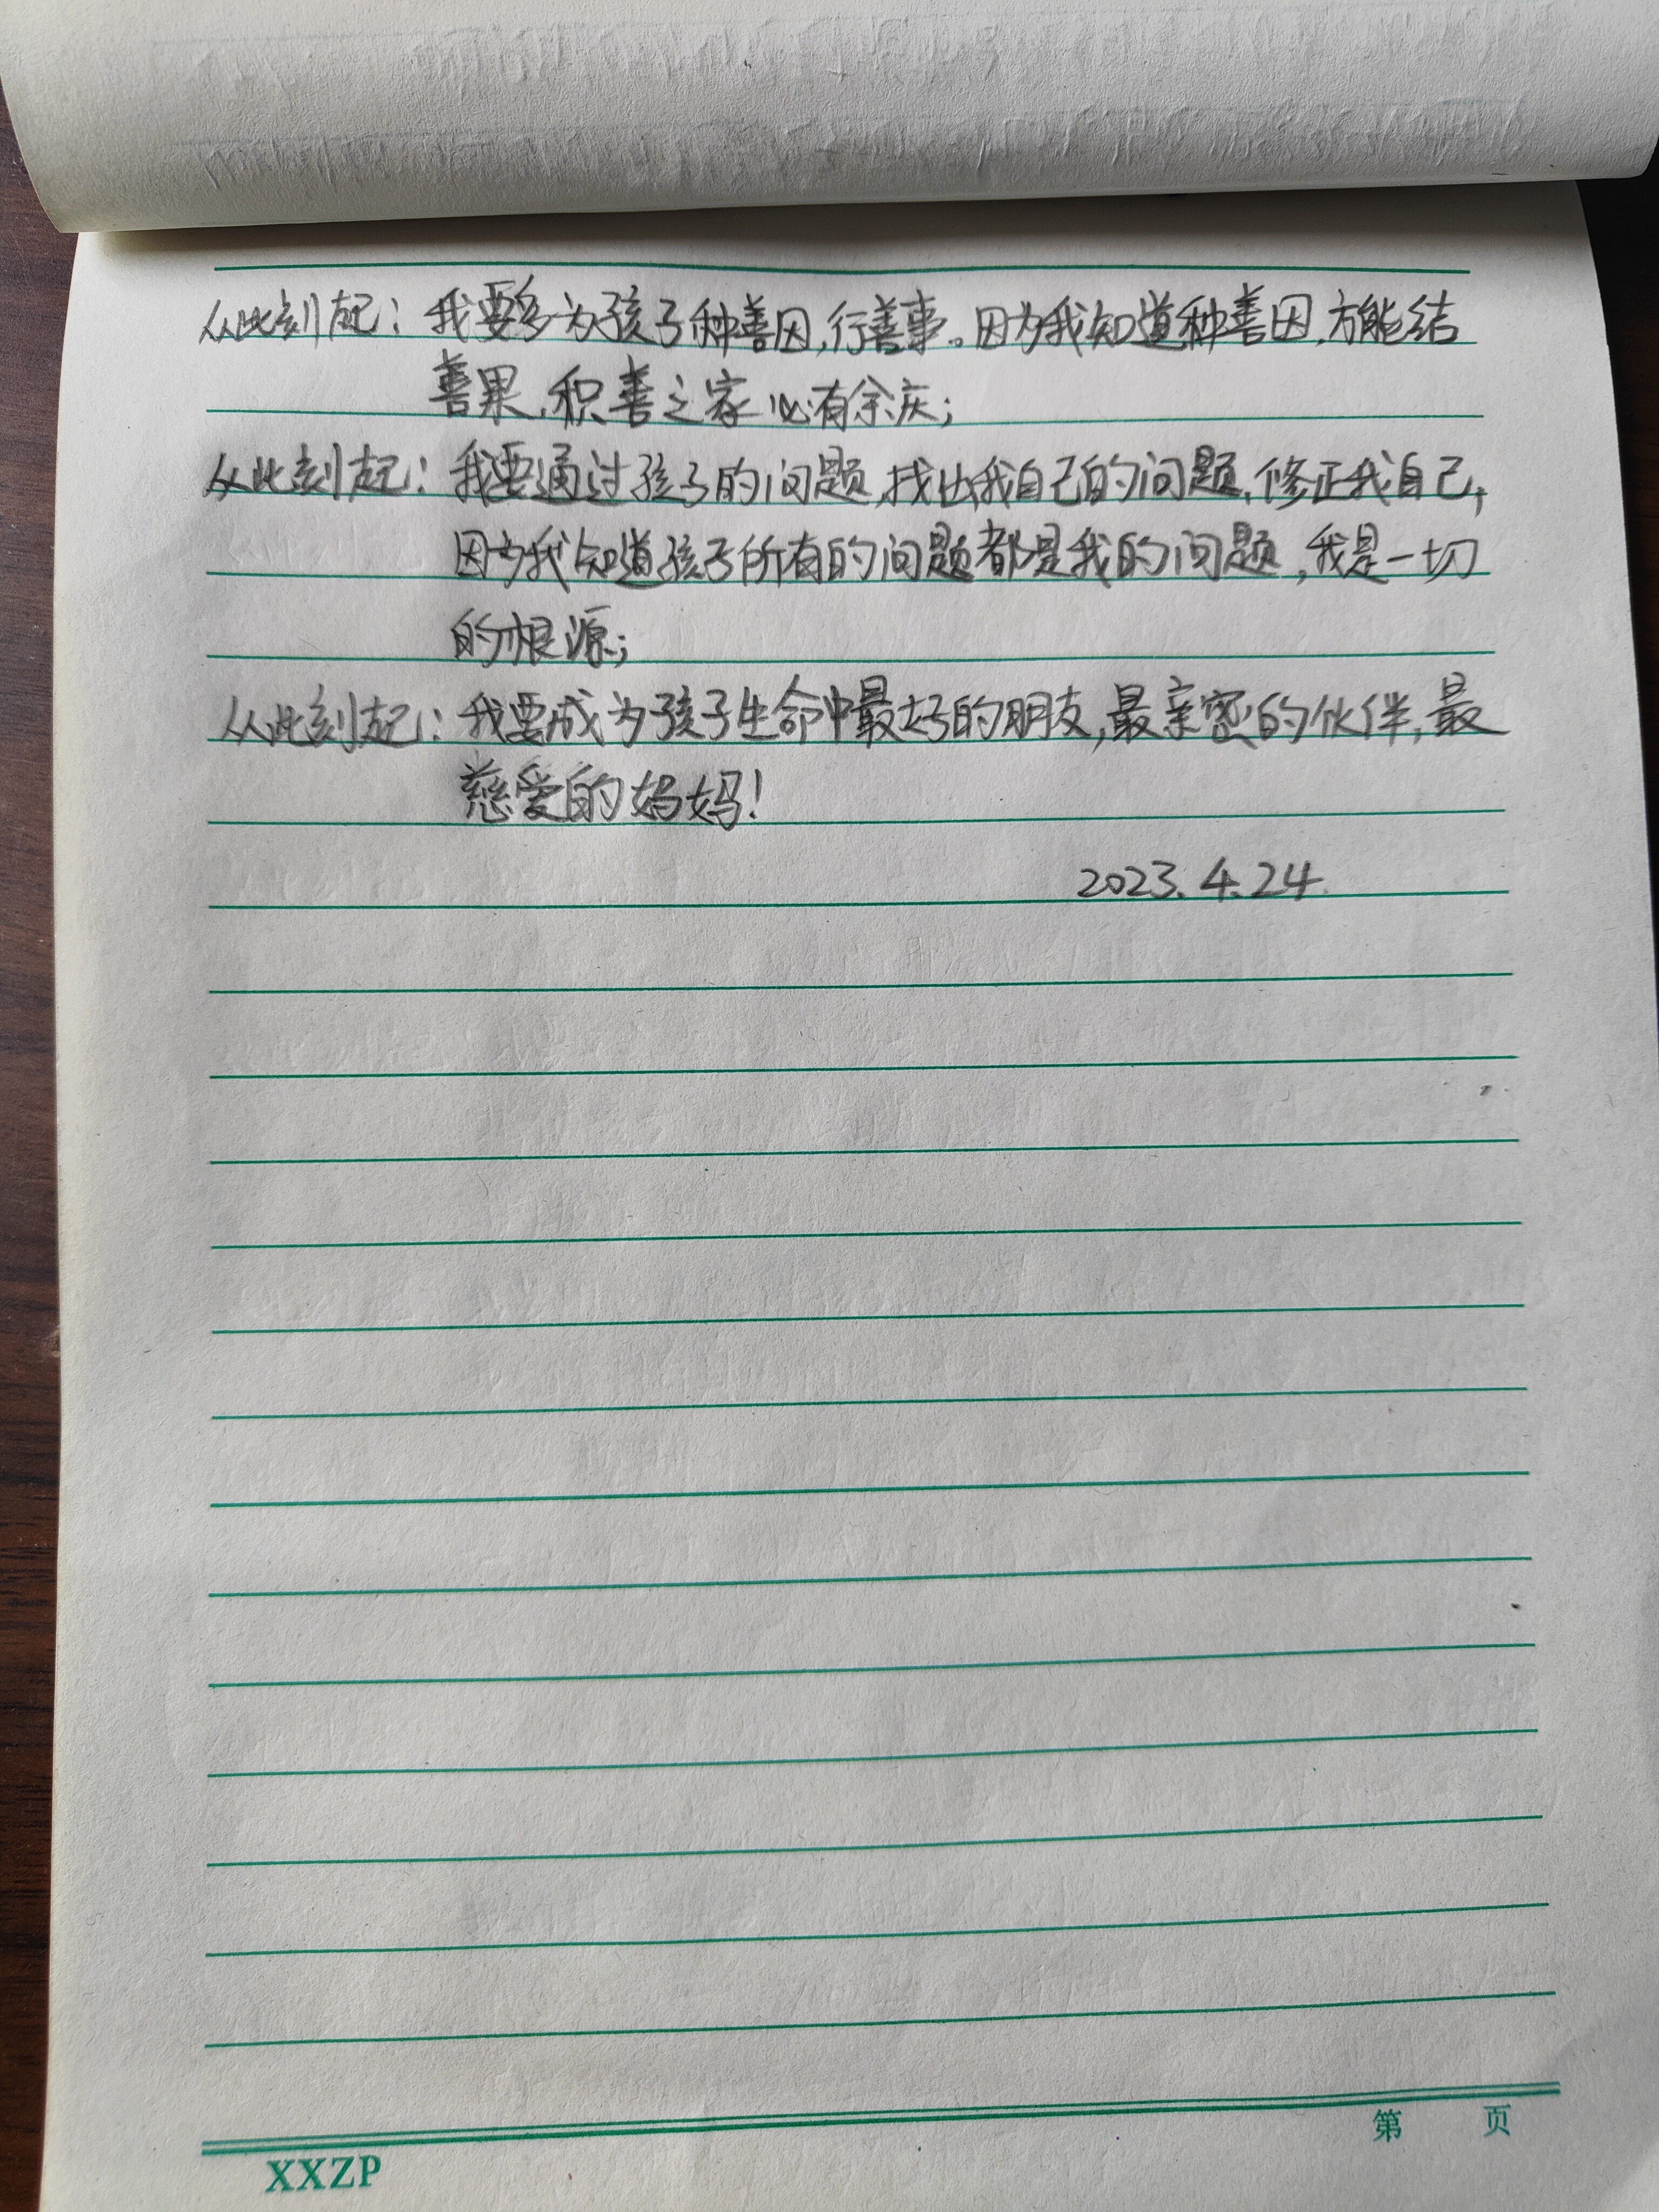 从此刻起：我要多为孩子种善因,行善事。因为我知道种善因,方能结
善果,积善之家必有余庆;
从此刻起：我要通过孩子的问题,找出我自己的问题,修正我自己,
因为我知道孩子所有的问题都是我的问题,我是一切
的根源;
从此刻起：我要成为孩子生命中最好的朋友,最亲密的伙伴,最
慈爱的妈妈!
2023.4.24
第 页
XXZP